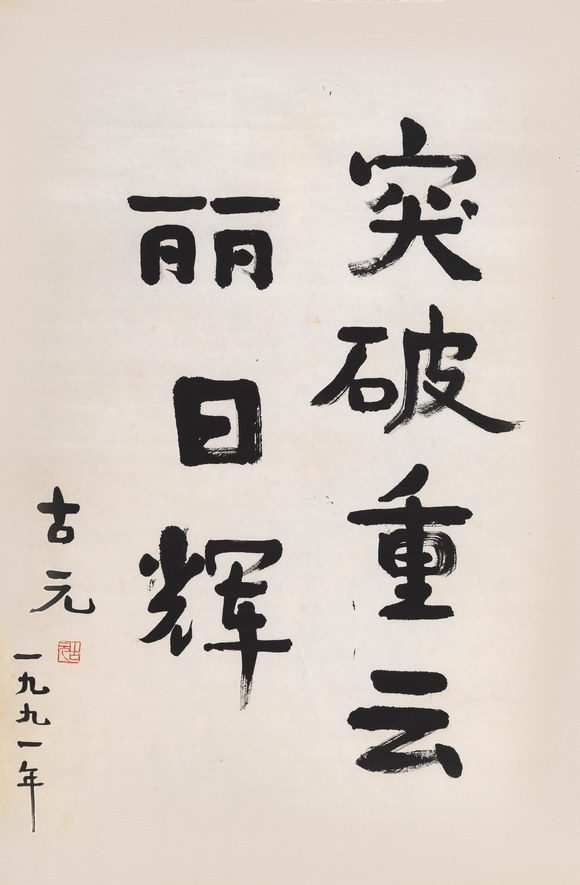 突破重云
丽日辉
古元
一九九一年